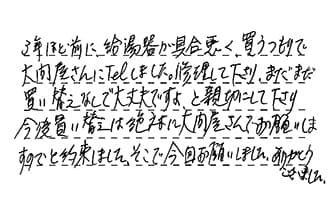 2年ほど前に、給湯器が具合悪く、買うつもりで
大向屋さんにTelしました。修理して下さり、まだまだ
買い替えなしで大丈夫ですよ、と親切にして下さり
今後買い替えは絶対に大向屋さんでお願いしま
すのでと約束しました。そこで今回お願いしました。ありがとう
ございました。